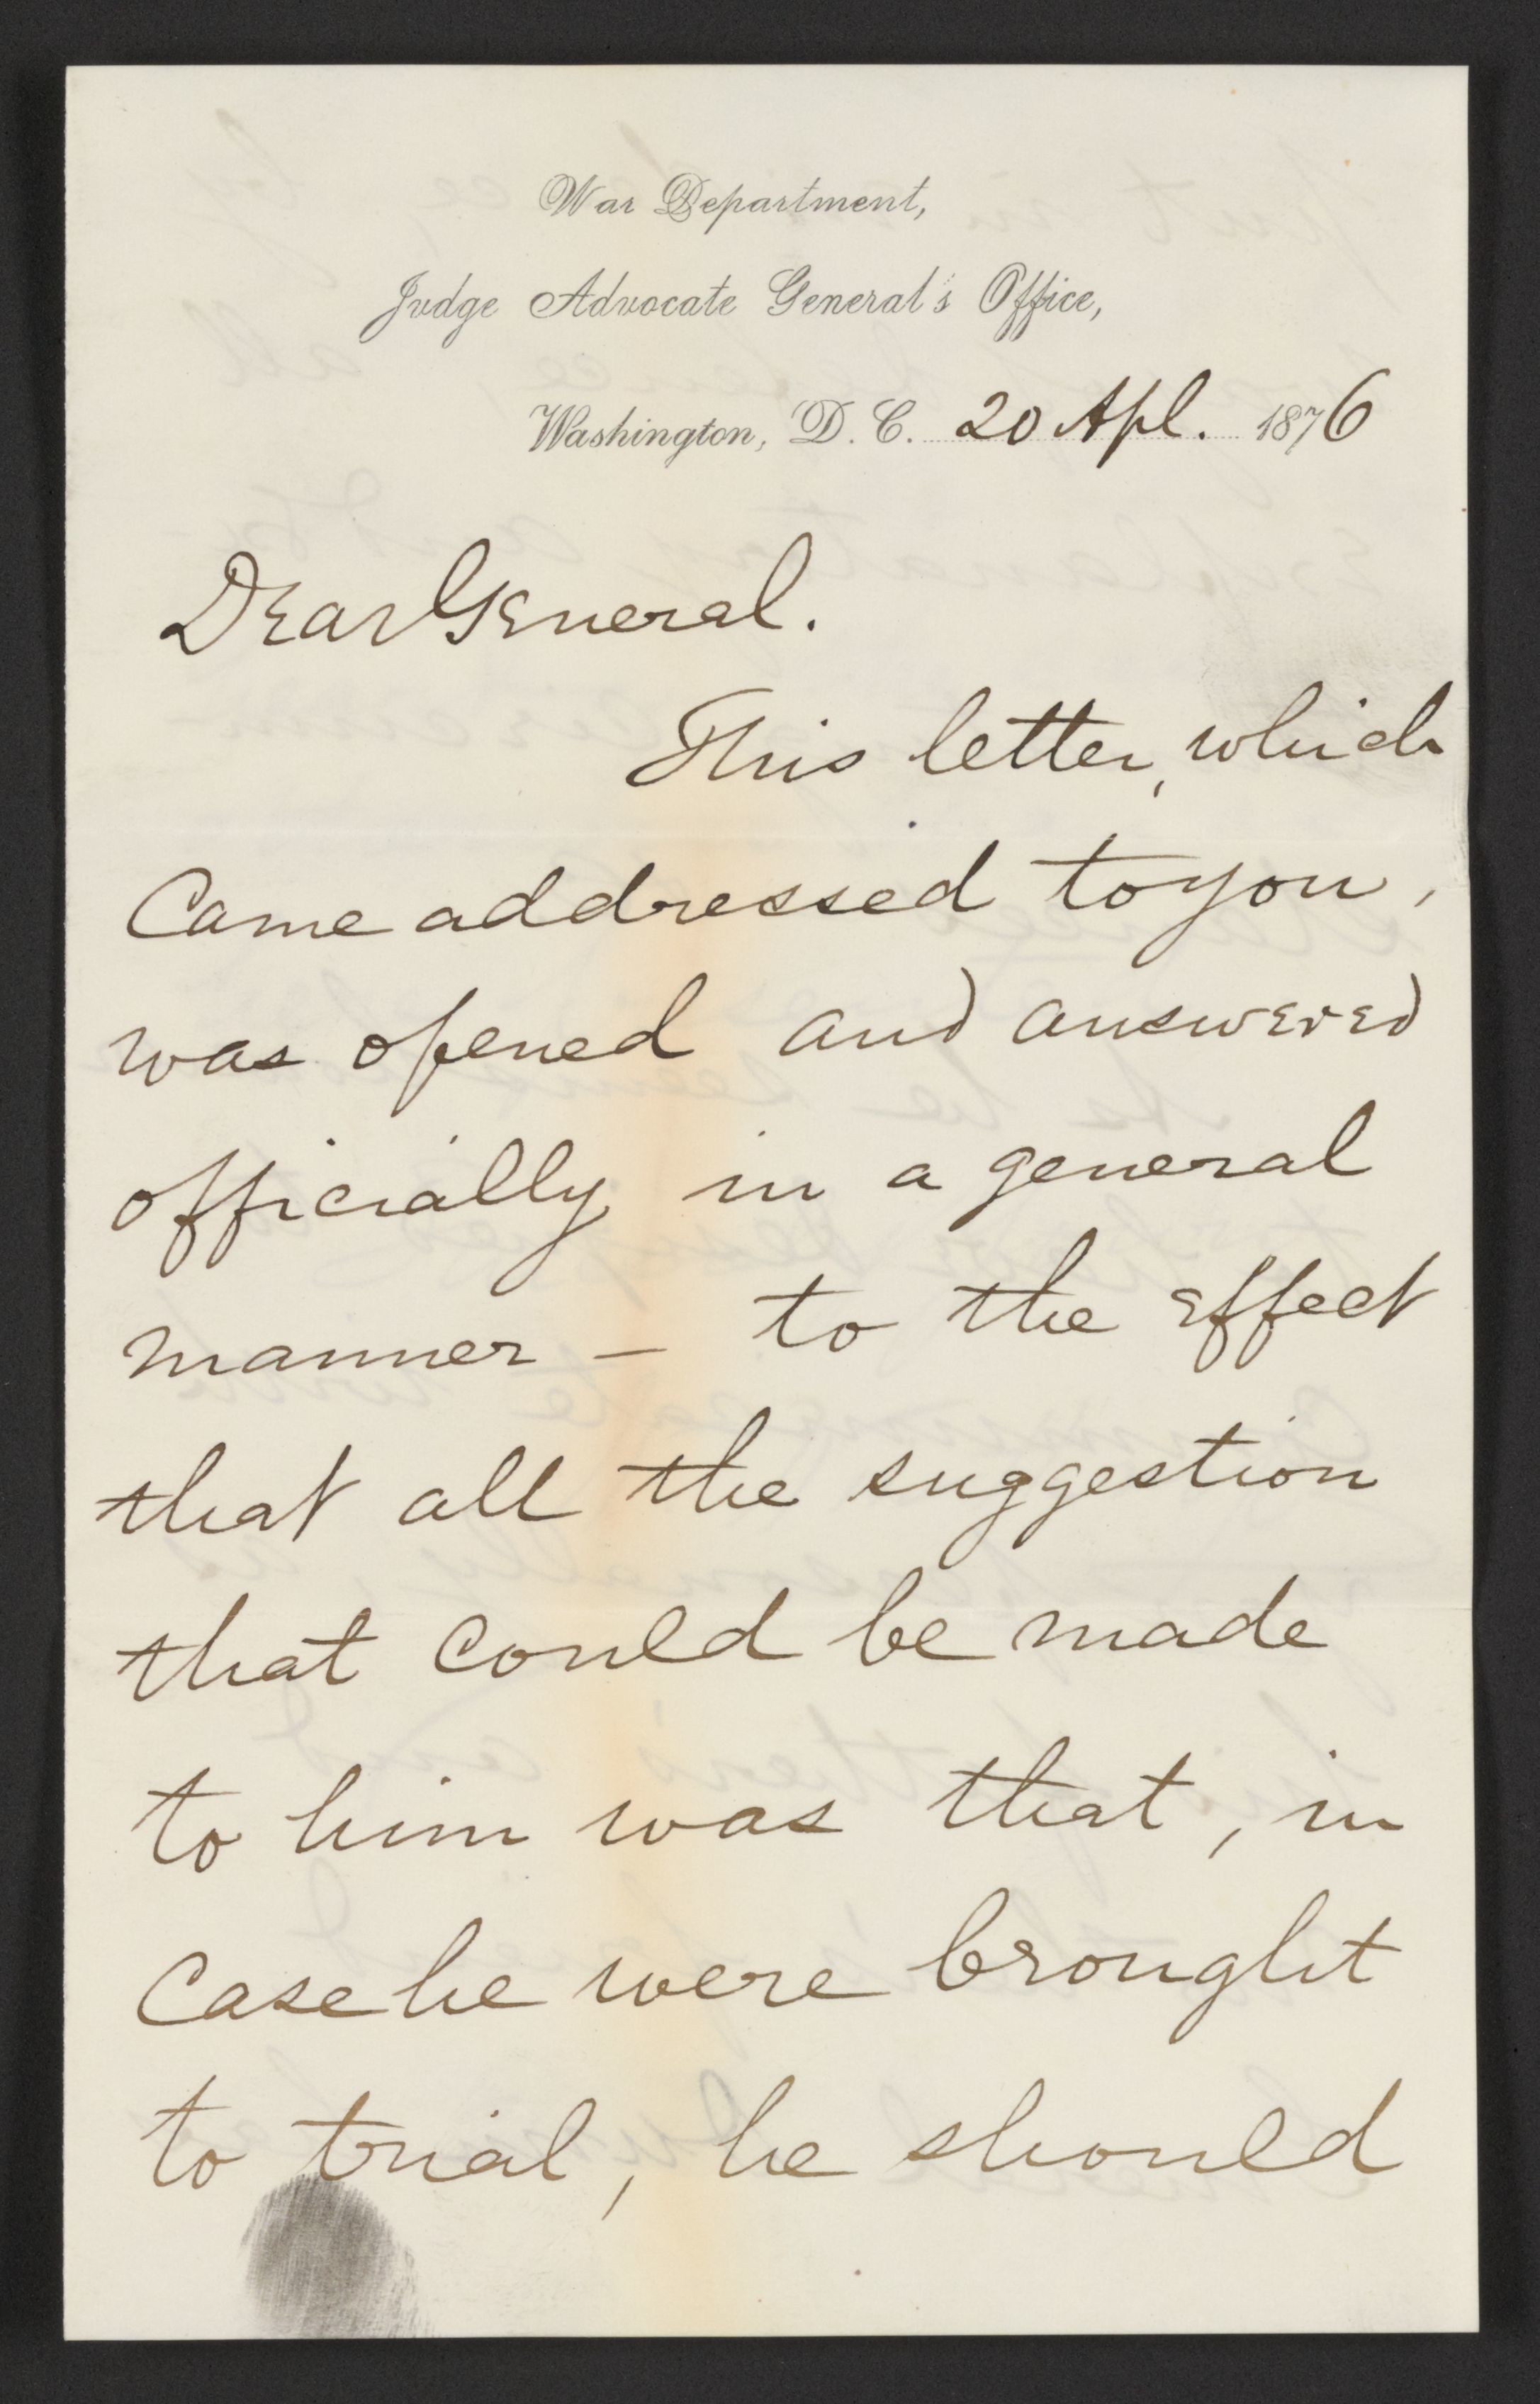 War Department,
Judge Advocate General's Office,
Washington, D. C. 20 Apl. 1876
Dear General.
This letter, which
came addressed to you,
was opened and answered
officially in a general
manner – to the effect
that all the suggestion
that could be made
to him was that, in
case he were brought
to trial, he should